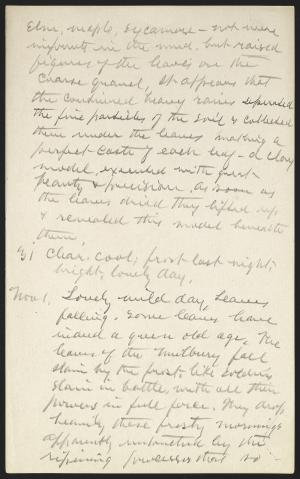 Elm, maple, sycamore - not mere
imprints in the mud, but raised
figures of the leaves on the
coarse gravel, it appears that
the continued heavy rains separated
the fine particles of the soil & collected
them under the leaves making a
perfect caste of each leaf - a clay
model, executed with great
beauty & precision. As soon as
the leaves dried they lifted up
& revealed this model beneath
them.
31 Clear, cool; frost last night;
bright, lovely day.
Nov 1. Lovely mild day, leaves
falling. Some leaves have
indeed a green old age. The
leaves of the mulbury fall
slain by the frost, like soldiers
slain in battle, with all their
powers in full force. They drop
heavily these frosty mornings
apparently untouched by the
ripening processes that so